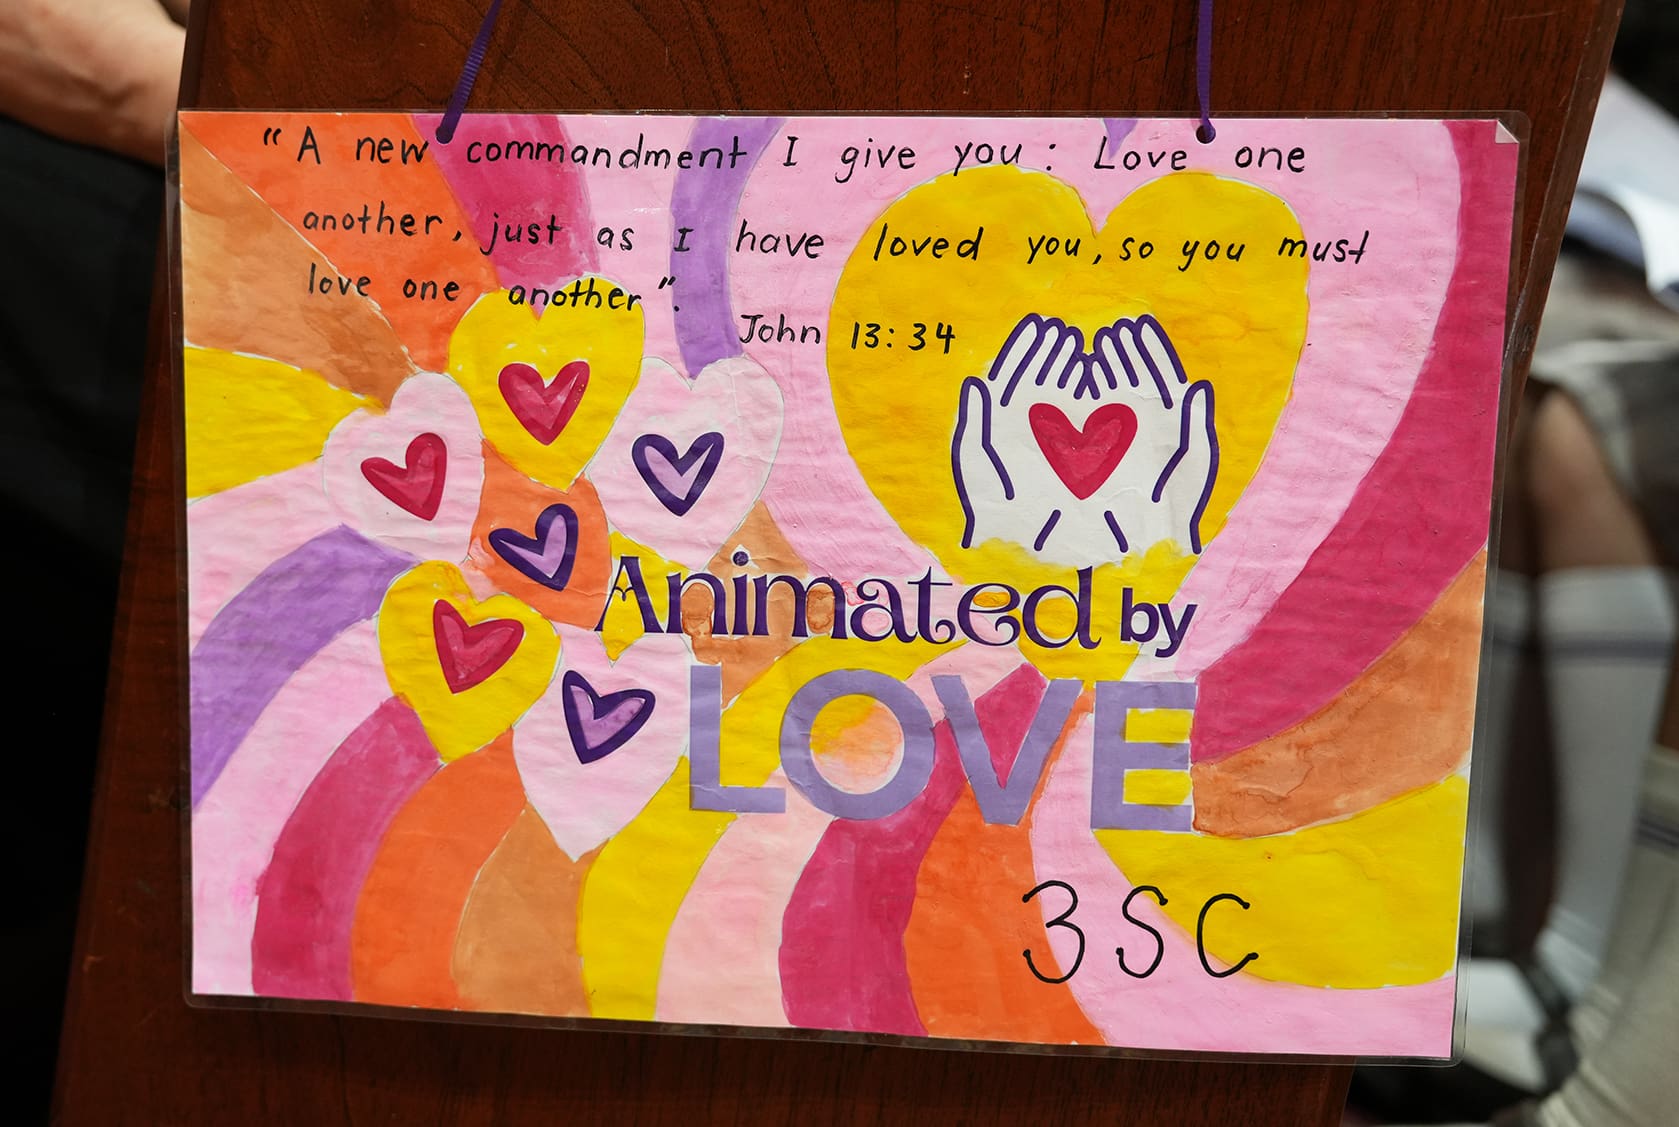 “A new commandment I give you: Love one
another, just as I have loved you, so you must
love one another”.
John 13:34
Animated by
LOVE
3SC